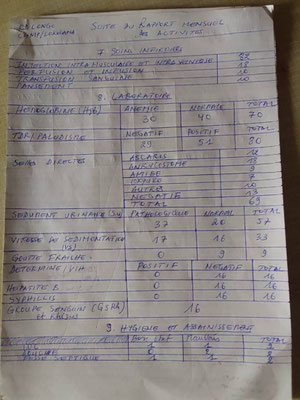 SUITE DU RAPPORT MENSUEL
DES ACTIVITES
7. SOINS INFIRMIERS
INJECTION INTRAMUSCULAIRE ET INTRAVEINEUSE 18
PERFUSION ET INFUSION 10
TRANSFUSION SANGUINE 10
PANSEMENT
8. LABORATOIRE
HEMOGLOBINE (Hgb) ANEMIE NORMALE TOTAL
30 40 70
TDR: PALUDISME NEGATIF POSITIF TOTAL
29 51 80
SELLES DIRECTES ASCARIS
ANKYLOSTOME 18
AMIBE
AUTRES 10
NEGATIF 13
TOTAL 69
SEDIMENT URINAIRE (Su) PATHOLOGIQUE NORMAL TOTAL
37 20 57
VITESSE DE SEDIMENTATION 17 16 33
(VS)
GOUTTE FRAICHE 0 9 9
DETERMINE/VIH POSITIF NEGATIF TOTAL
0 16 16
HEPATITE B 0 16 16
SYPHILLIS 0 16 16
GROUPE SANGUIN (GSRh) 16
ET RHESUS
9. HYGIENE ET ASSAINISSEMENT
BON ETAT MAUVAIS TOTAL
FOSSE SEPTIQUE